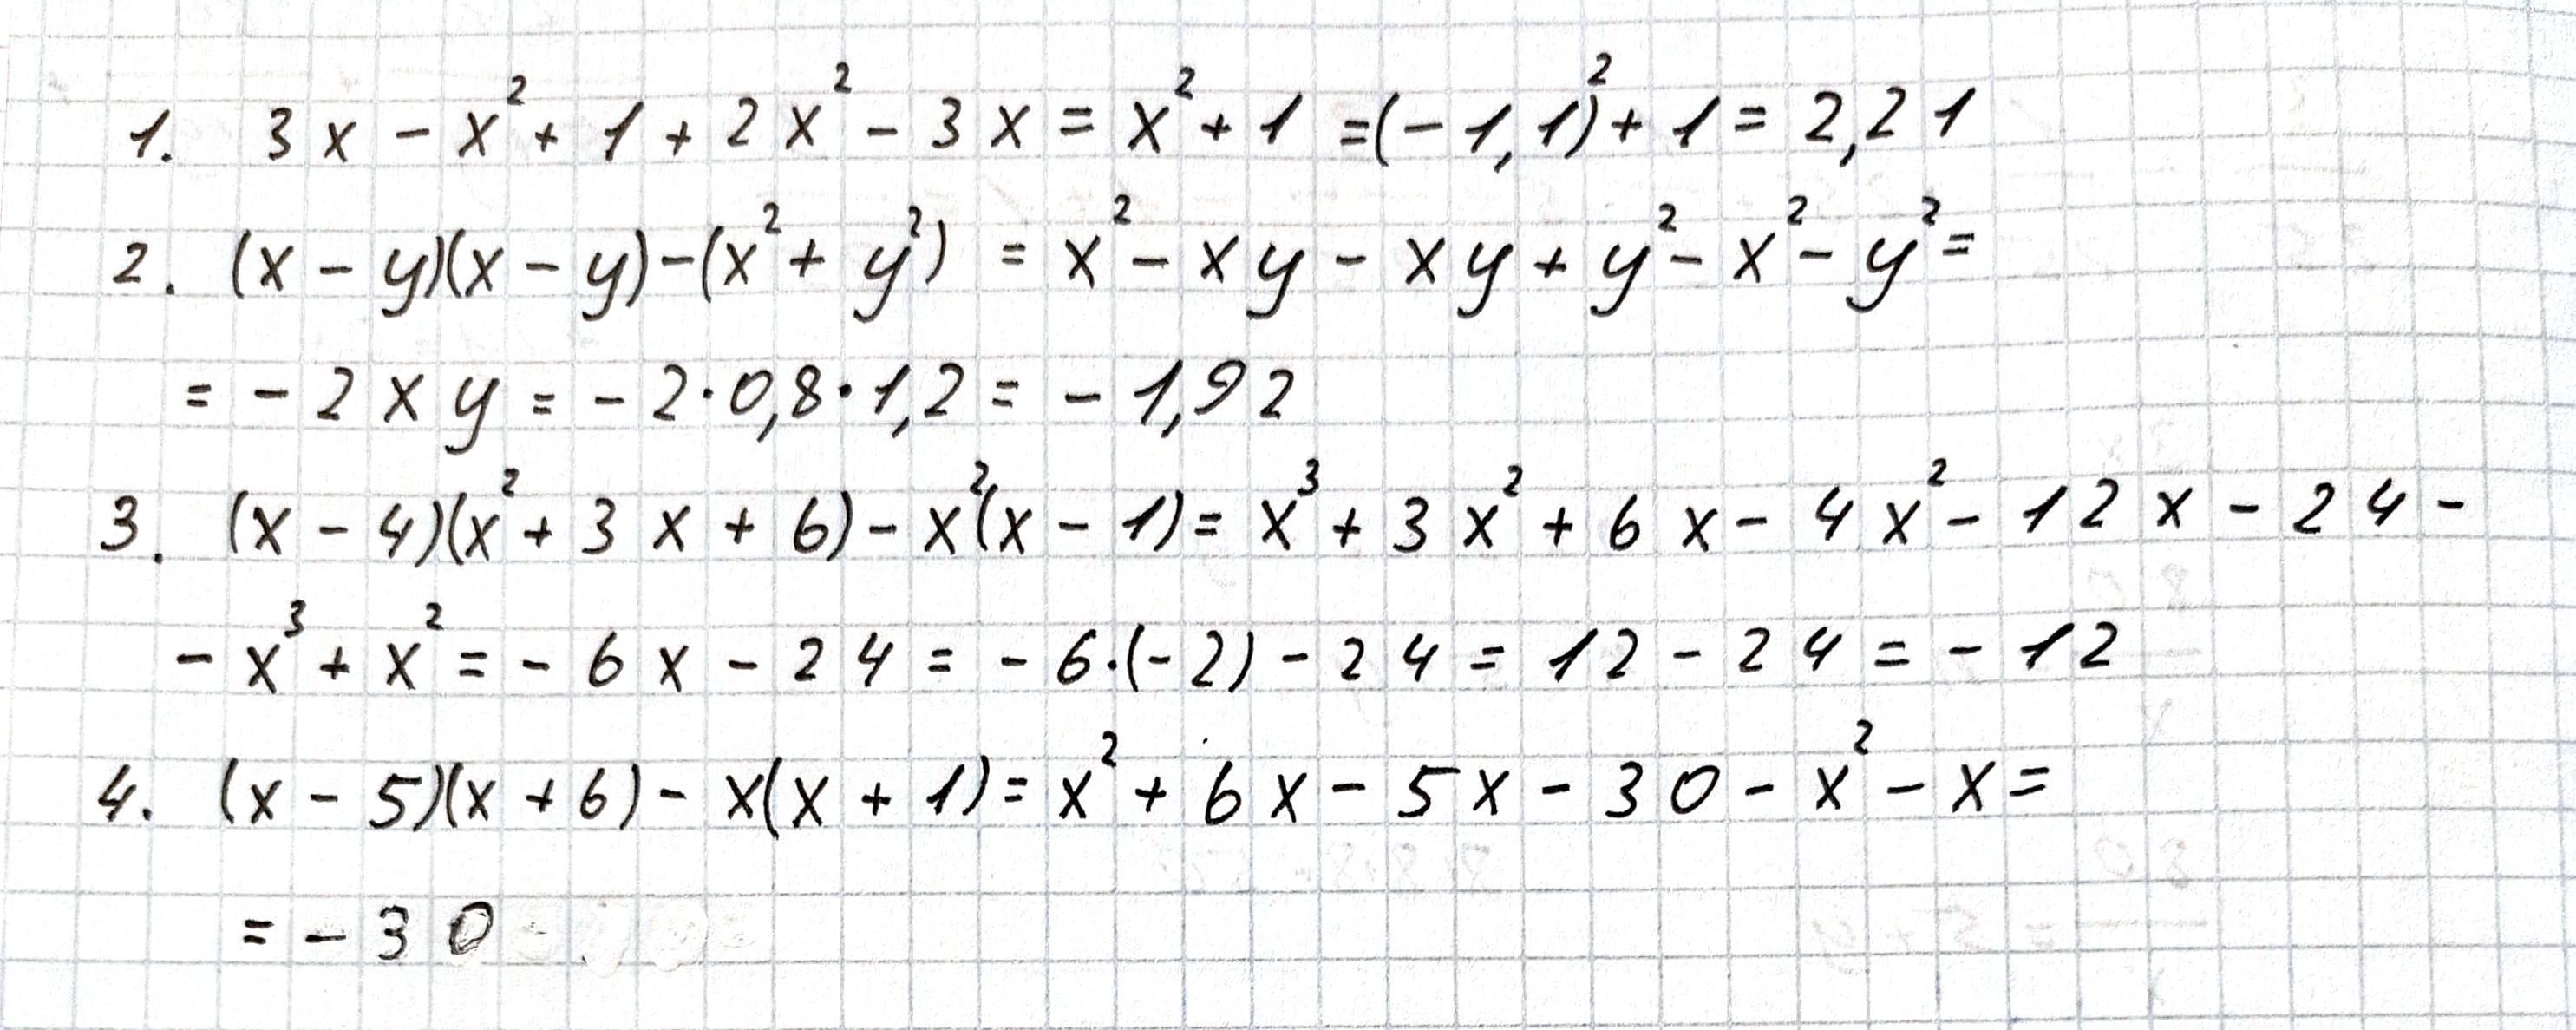 1. 3x - x² + 1 + 2x² - 3x = x² + 1 = (-1,1)² + 1 = 2,21
2. (x - y)(x - y) - (x² + y²) = x² - xy - xy + y² - x² - y² =
= - 2xy = - 2·0,8·1,2 = - 1,92
3. (x - 4)(x² + 3x + 6) - x²(x - 1) = x³ + 3x² + 6x - 4x² - 12x - 24 -
- x³ + x² = - 6x - 24 = - 6·(-2) - 24 = 12 - 24 = - 12
4. (x - 5)(x + 6) - x(x + 1) = x² + 6x - 5x - 30 - x² - x =
= - 30